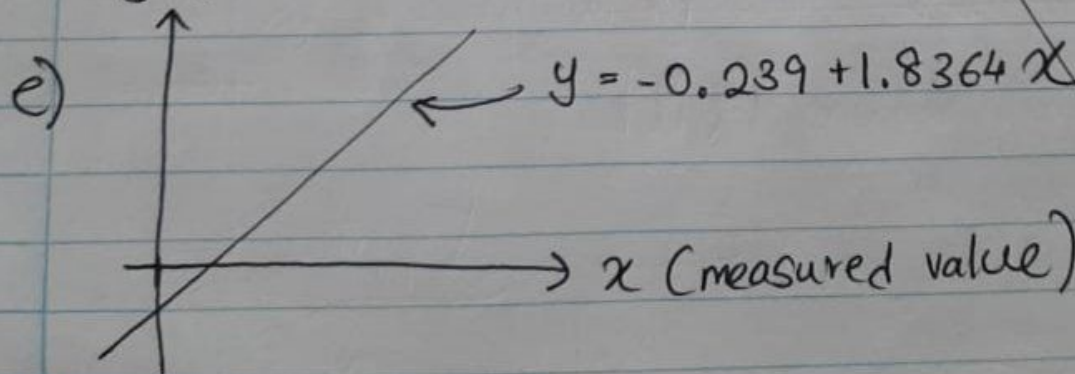 e)
y = -0.239 + 1.8364 x
x (measured value)